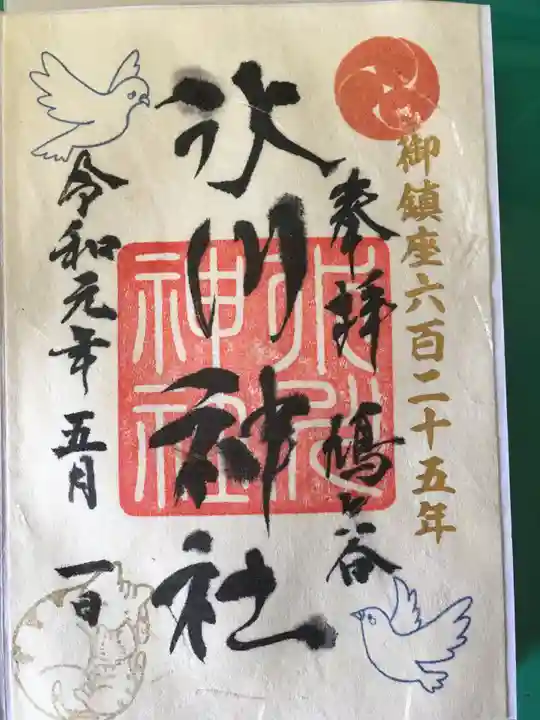 御鎮座六百二十五年
奉拝 鳩ヶ谷
氷川神社
氷川
神社
令和元年五月一日